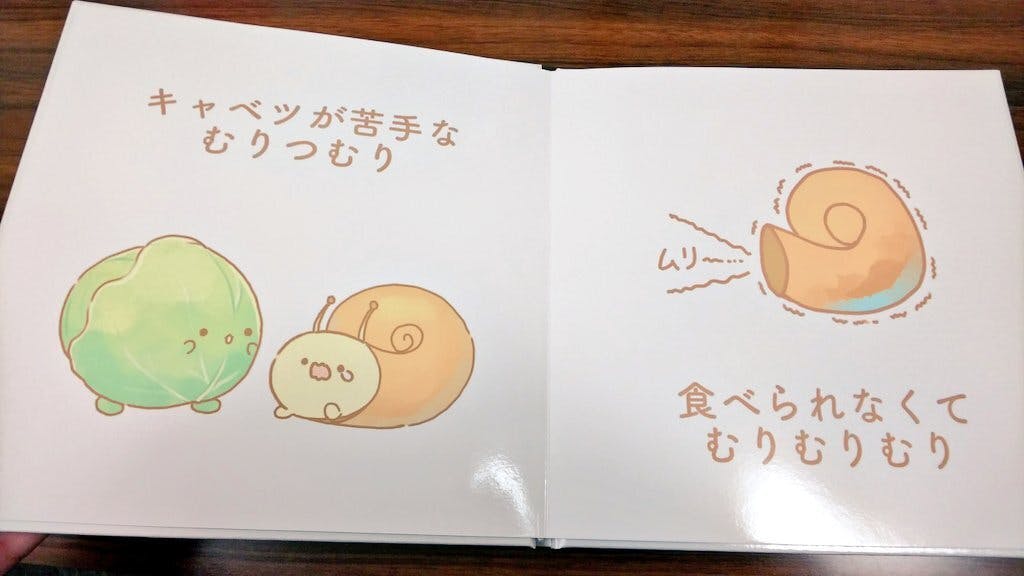 キャベツが苦手な
むりつむり
ムリ〜…
食べられなくて
むりむりむり